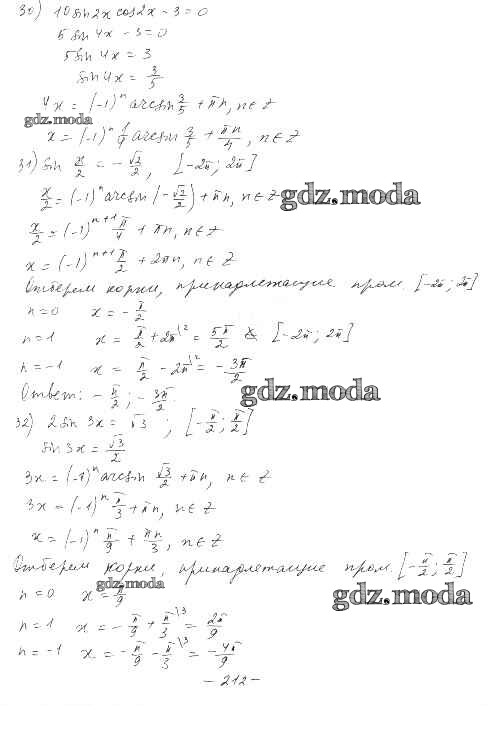 30) 10 sin 2x cos 2x - 3 = 0
5 sin 4x - 3 = 0
5 sin 4x = 3
sin 4x = 3/5
4x = (-1)^n arcsin 3/5 + πn, n ∈ Z
gdz.moda
x = (-1)^n 1/4 arcsin 3/5 + πn/4, n ∈ Z
31) sin x/2 = -√2/2, [-2π; 2π]
x/2 = (-1)^n arcsin (-√2/2) + πn, n ∈ Z
gdz.moda
x/2 = (-1)^(n+1) π/4 + πn, n ∈ Z
x = (-1)^(n+1) π/2 + 2πn, n ∈ Z
Отберем корни, принадлежащие пром. [-2π; 2π]
n=0 x = -π/2
n=1 x = π/2 + 2π\2 = 5π/2 ∉ [-2π; 2π]
n=-1 x = π/2 - 2π\2 = -3π/2
Ответ: -π/2; -3π/2.
gdz.moda
32) 2 sin 3x = √3 ; [-π/2; π/2]
sin 3x = √3/2
3x = (-1)^n arcsin √3/2 + πn, n ∈ Z
3x = (-1)^n π/3 + πn, n ∈ Z
x = (-1)^n π/9 + πn/3, n ∈ Z
Отберем корни, принадлежащие пром. [-π/2; π/2]
gdz.moda
n=0 x = π/9
gdz.moda
n=1 x = -π/9 + π/3\3 = 2π/9
n=-1 x = -π/9 - π/3\3 = -4π/9
- 212 -